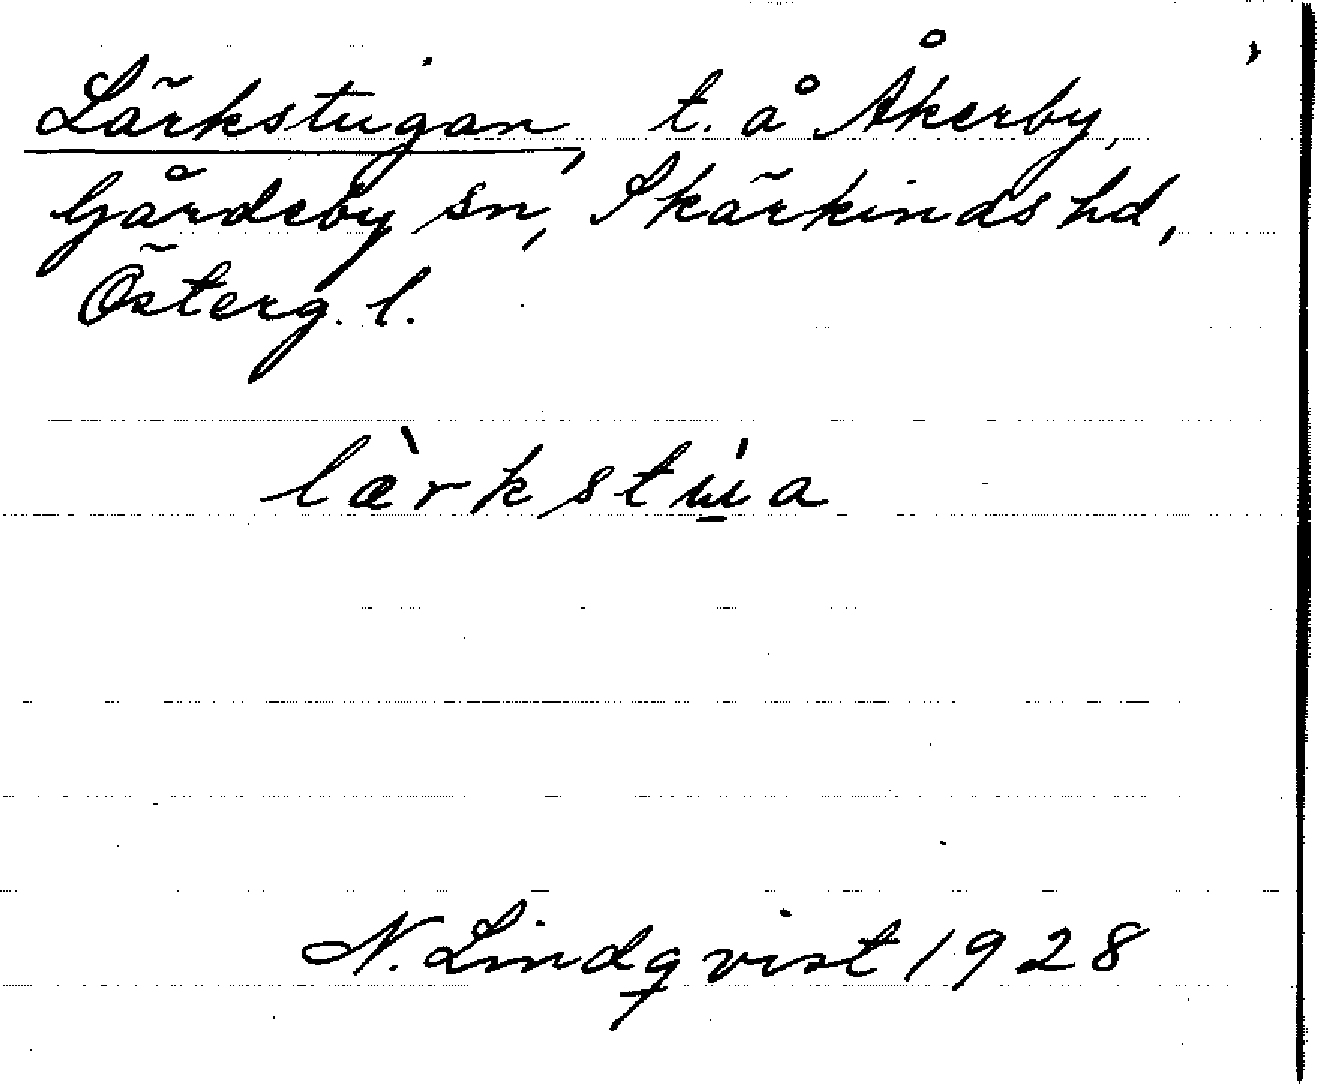 Lärkstugan, t. å Åkerby,
Gårdeby sn, Skärkinds hd,
Österg. l.
læ̀rkstú̲a
N. Lindqvist 1928